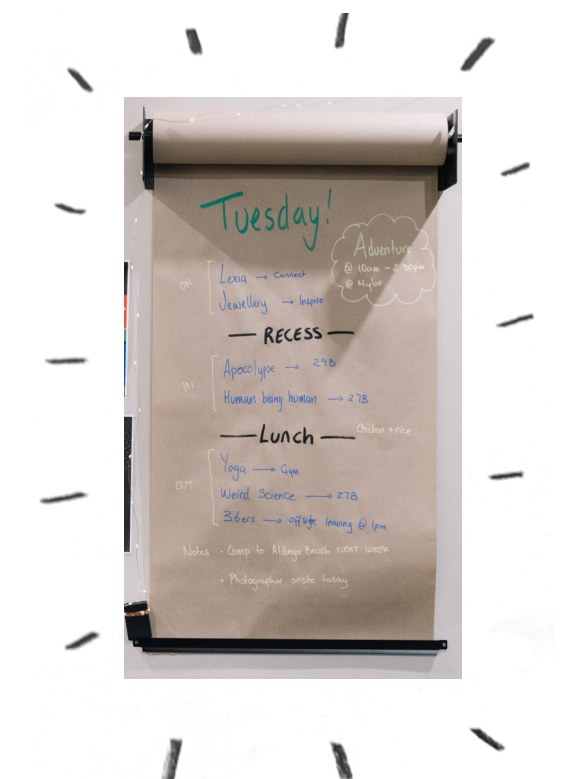 Tuesday!
Adventure
@ 10am - 2:30pm
@ Mylor
ON
Lexia → Connect
Jewellery → Inspire
— RECESS —
IN
Apocolypse → 29B
Human being human → 27B
— Lunch —
Chicken + rice
OUT
Yoga → Gym
Weird Science → 27B
36ers → offsite leaving @ 1pm
Notes • Camp to Aldinga Beach NEXT WEEK
• Photographer onsite today